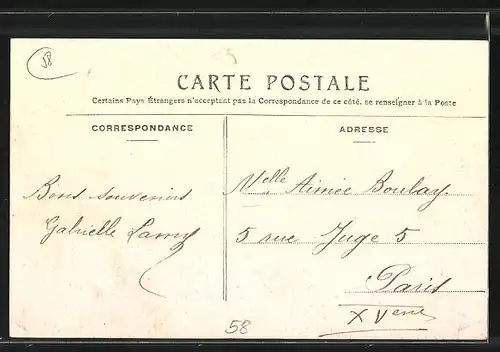 58
CARTE POSTALE
Certains Pays Étrangers n'acceptant pas la Correspondance de ce côté, se renseigner à la Poste
CORRESPONDANCE
ADRESSE
Bons souvenirs
Gabrielle Lamy
Melle Aimée Boulay
5 rue Juge 5
Paris
XVeme
58